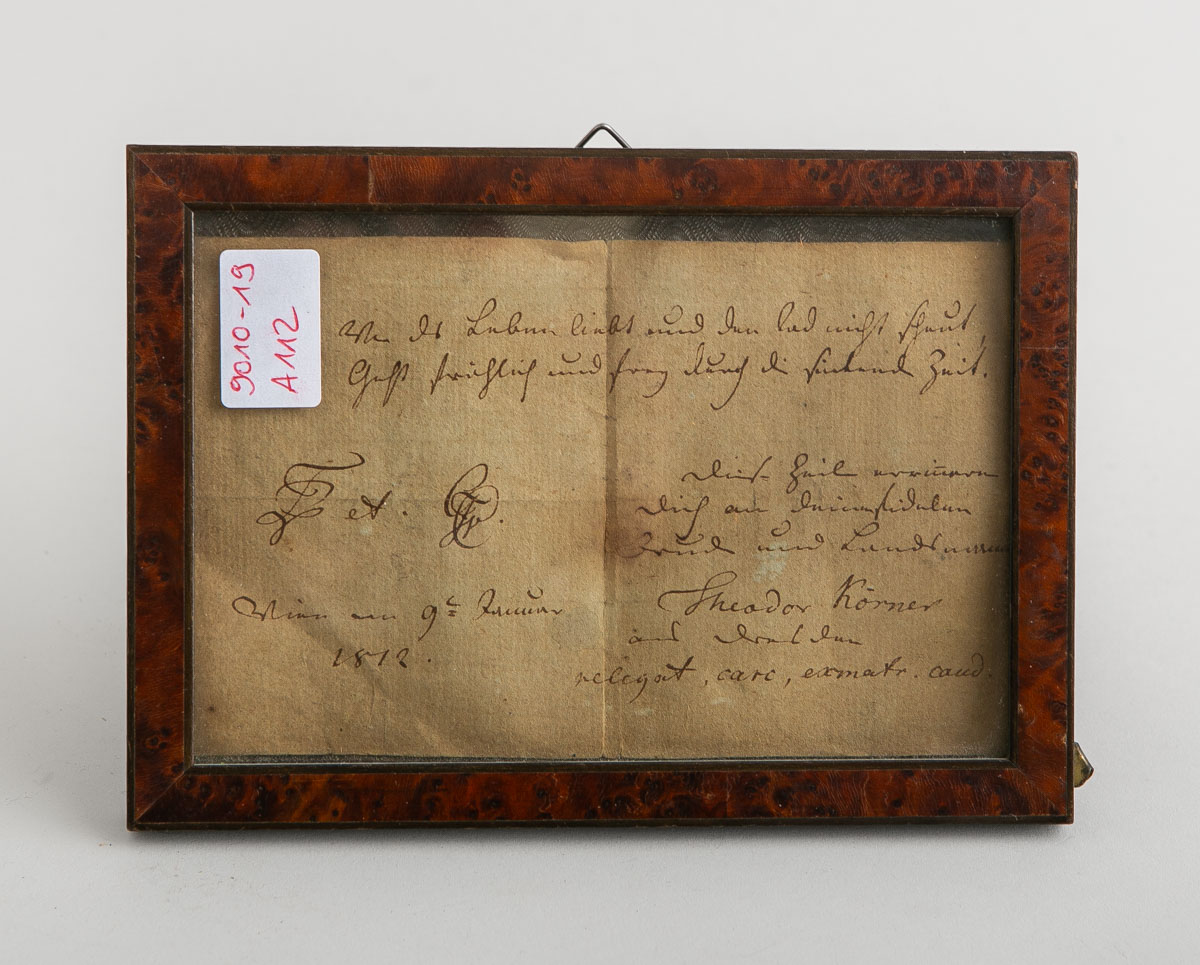 9010-19
A 112
Wer das Leben liebt und den Tod nicht scheut,
Geht fröhlich und frey durch die sinkende Zeit.
et.
Diese Zeile erinnere
Dich an deinen fidelen
Bruder und Landsmann
Wien am 9t Januar
1812.
Theodor Körner
aus Dresden
relegat, carc, exmatr. cand.